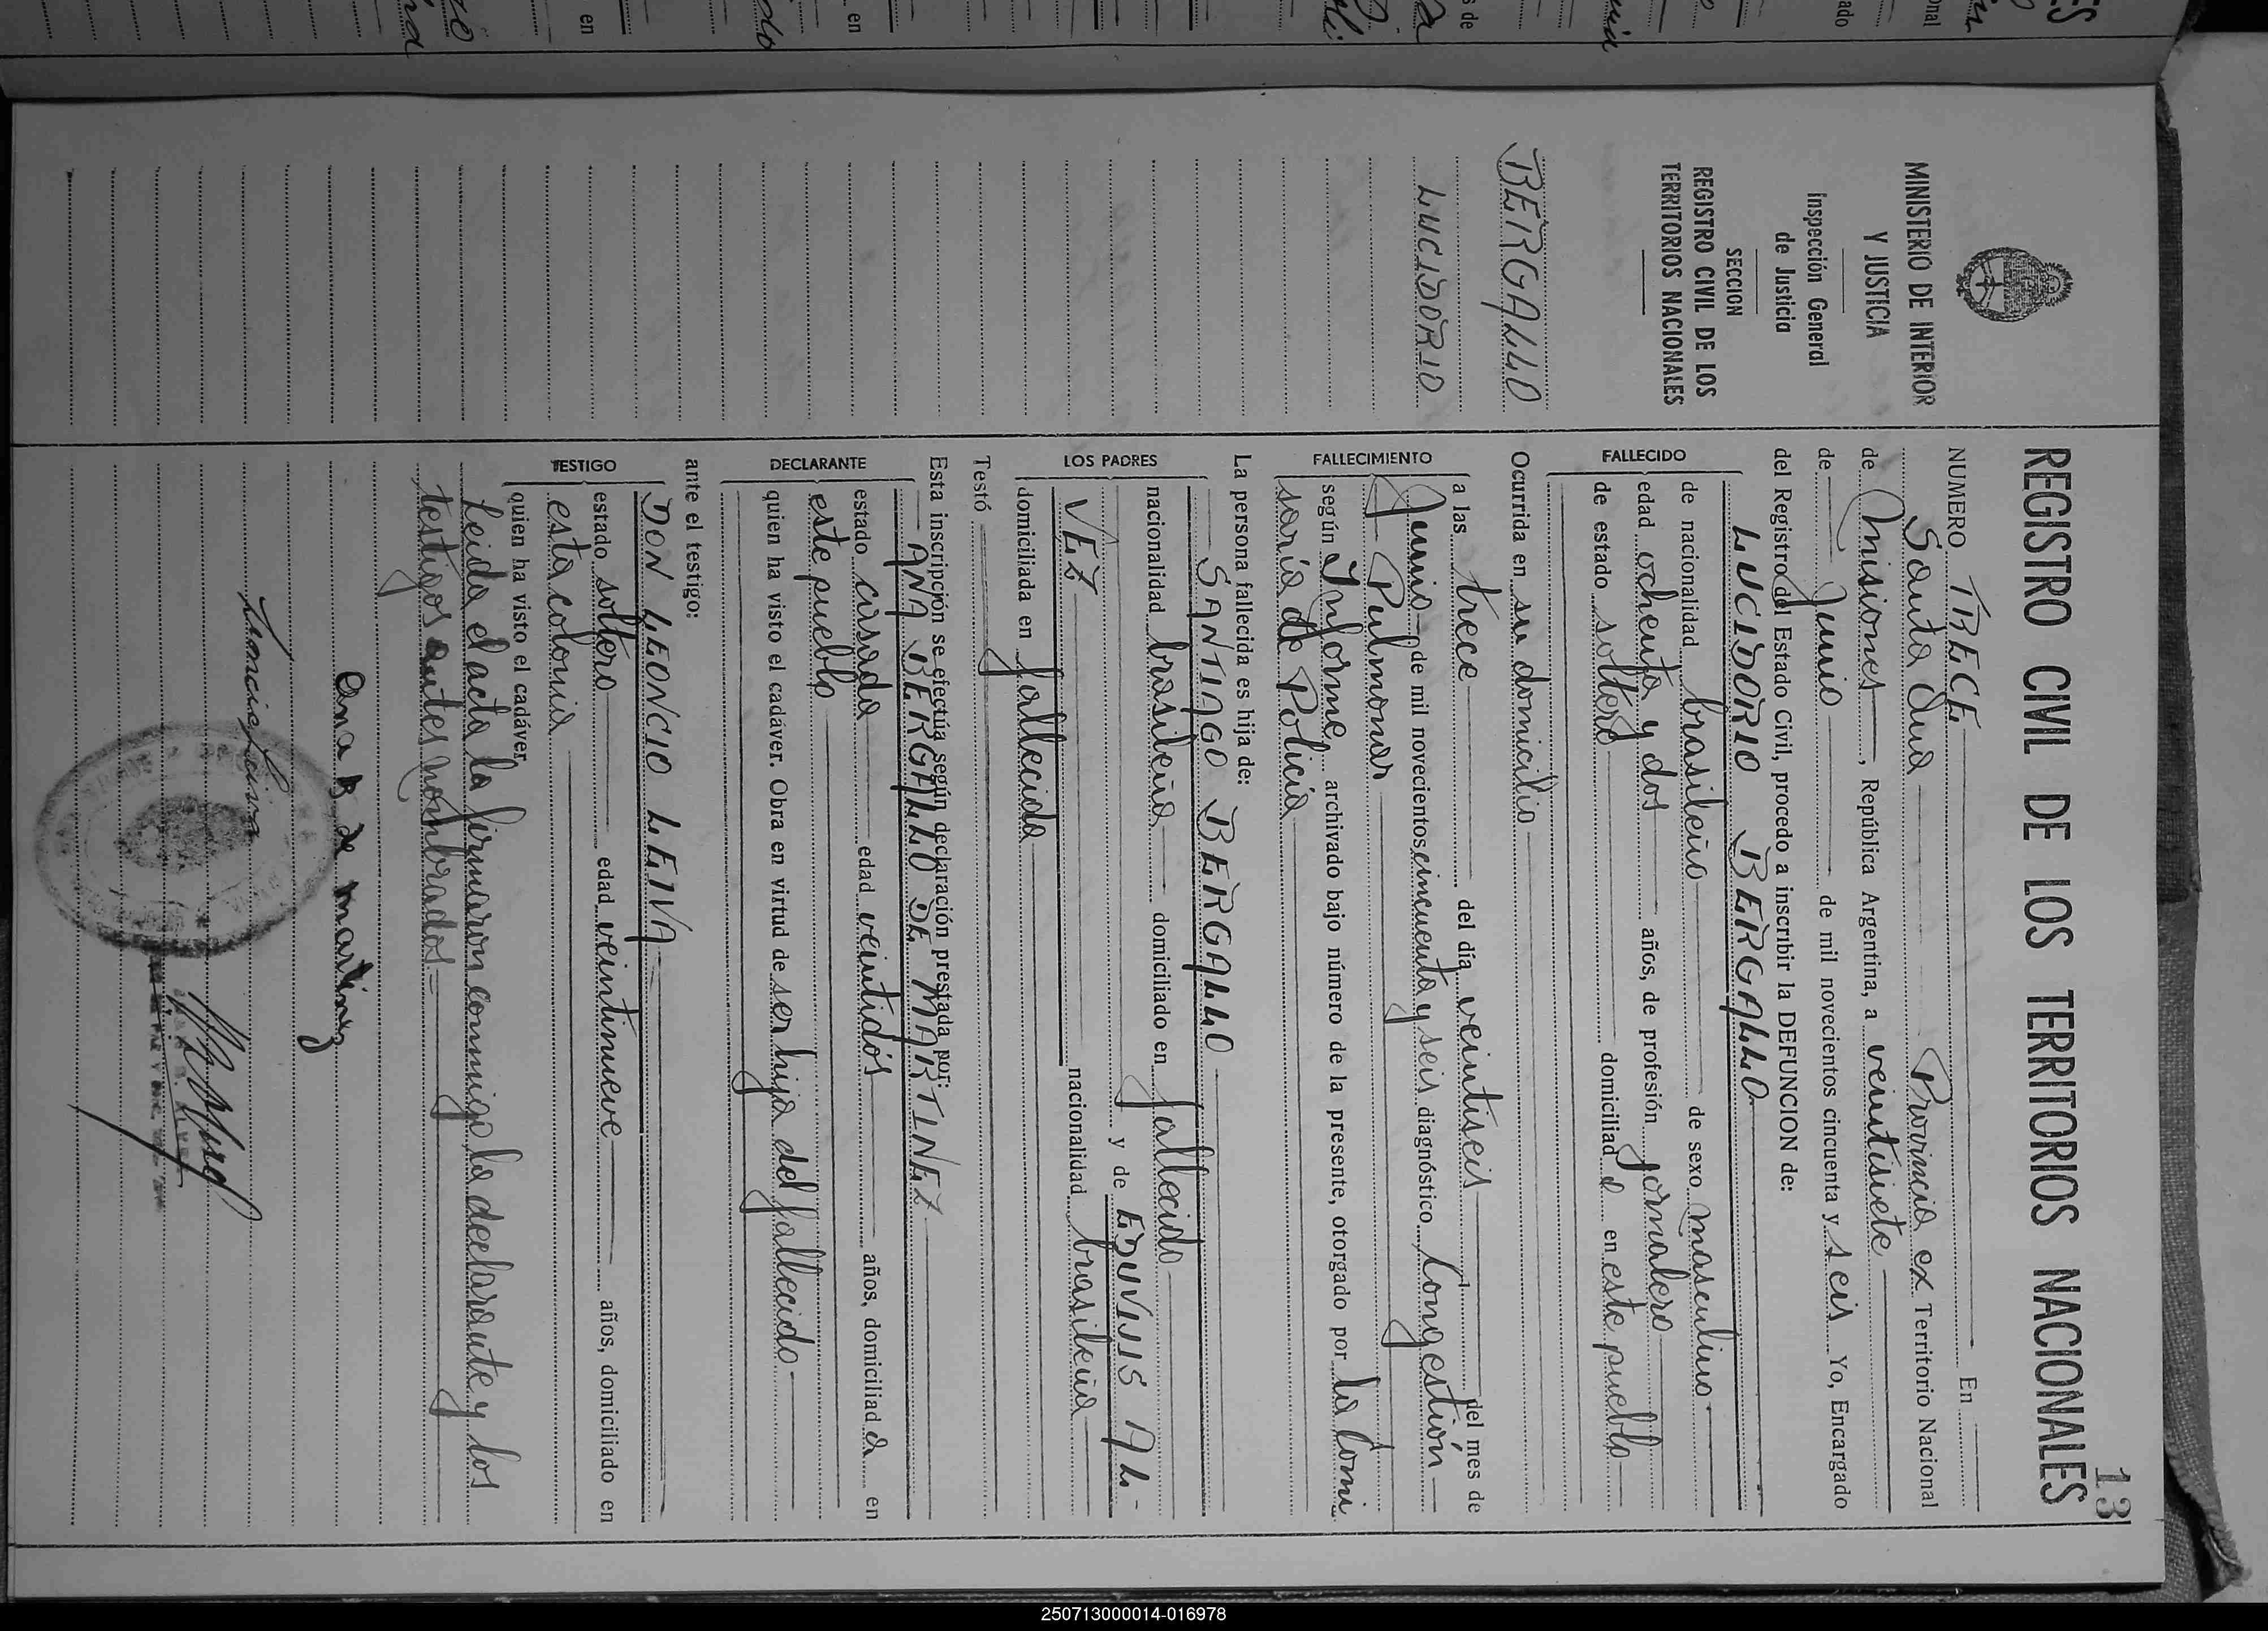 13
REGISTRO CIVIL DE LOS TERRITORIOS NACIONALES
MINISTERIO DE INTERIOR
Y JUSTICIA
Inspección General
de Justicia
SECCION
REGISTRO CIVIL DE LOS
TERRITORIOS NACIONALES
BERGALLO
LUCIDORIO
NUMERO TRECE En
Santa Ana Provincia ex Territorio Nacional
de Misiones, República Argentina, a veintisiete
de Junio de mil novecientos cincuenta y seis Yo, Encargado
del Registro del Estado Civil, procedo a inscribir la DEFUNCION de:
FALLECIDO
LUCIDORIO BERGALLO
de nacionalidad brasileño de sexo masculino
edad ochenta y dos años, de profesión jornalero
de estado soltero domiciliado en este pueblo
Ocurrida en su domicilio
FALLECIMIENTO
a las trece del día veintiseis del mes de
Junio de mil novecientos cincuenta y seis diagnóstico Congestión
Pulmonar
según Informe, archivado bajo número de la presente, otorgado por la Comi
saría de Policía
La persona fallecida es hija de:
LOS PADRES
SANTIAGO BERGALLO
nacionalidad brasileña domiciliado en fallecido
y de EDUVIJIS AL-
VEZ nacionalidad brasileña
domiciliada en fallecida
Testó
Esta inscripción se efectúa según declaración prestada por:
DECLARANTE
ANA BERGALLO DE MARTINEZ
estado casada edad veintidós años, domiciliada en
este pueblo
quien ha visto el cadáver. Obra en virtud de ser hija del fallecido
ante el testigo:
TESTIGO
DON LEONCIO LEIVA
estado soltero edad veintinueve años, domiciliado en
esta colonia
quien ha visto el cadáver,
Leida el acta la firmaron conmigo la declarante y los
testigos antes nombrados.=
Ana B de martinz
Leoncio Leiva
250713000014-016978